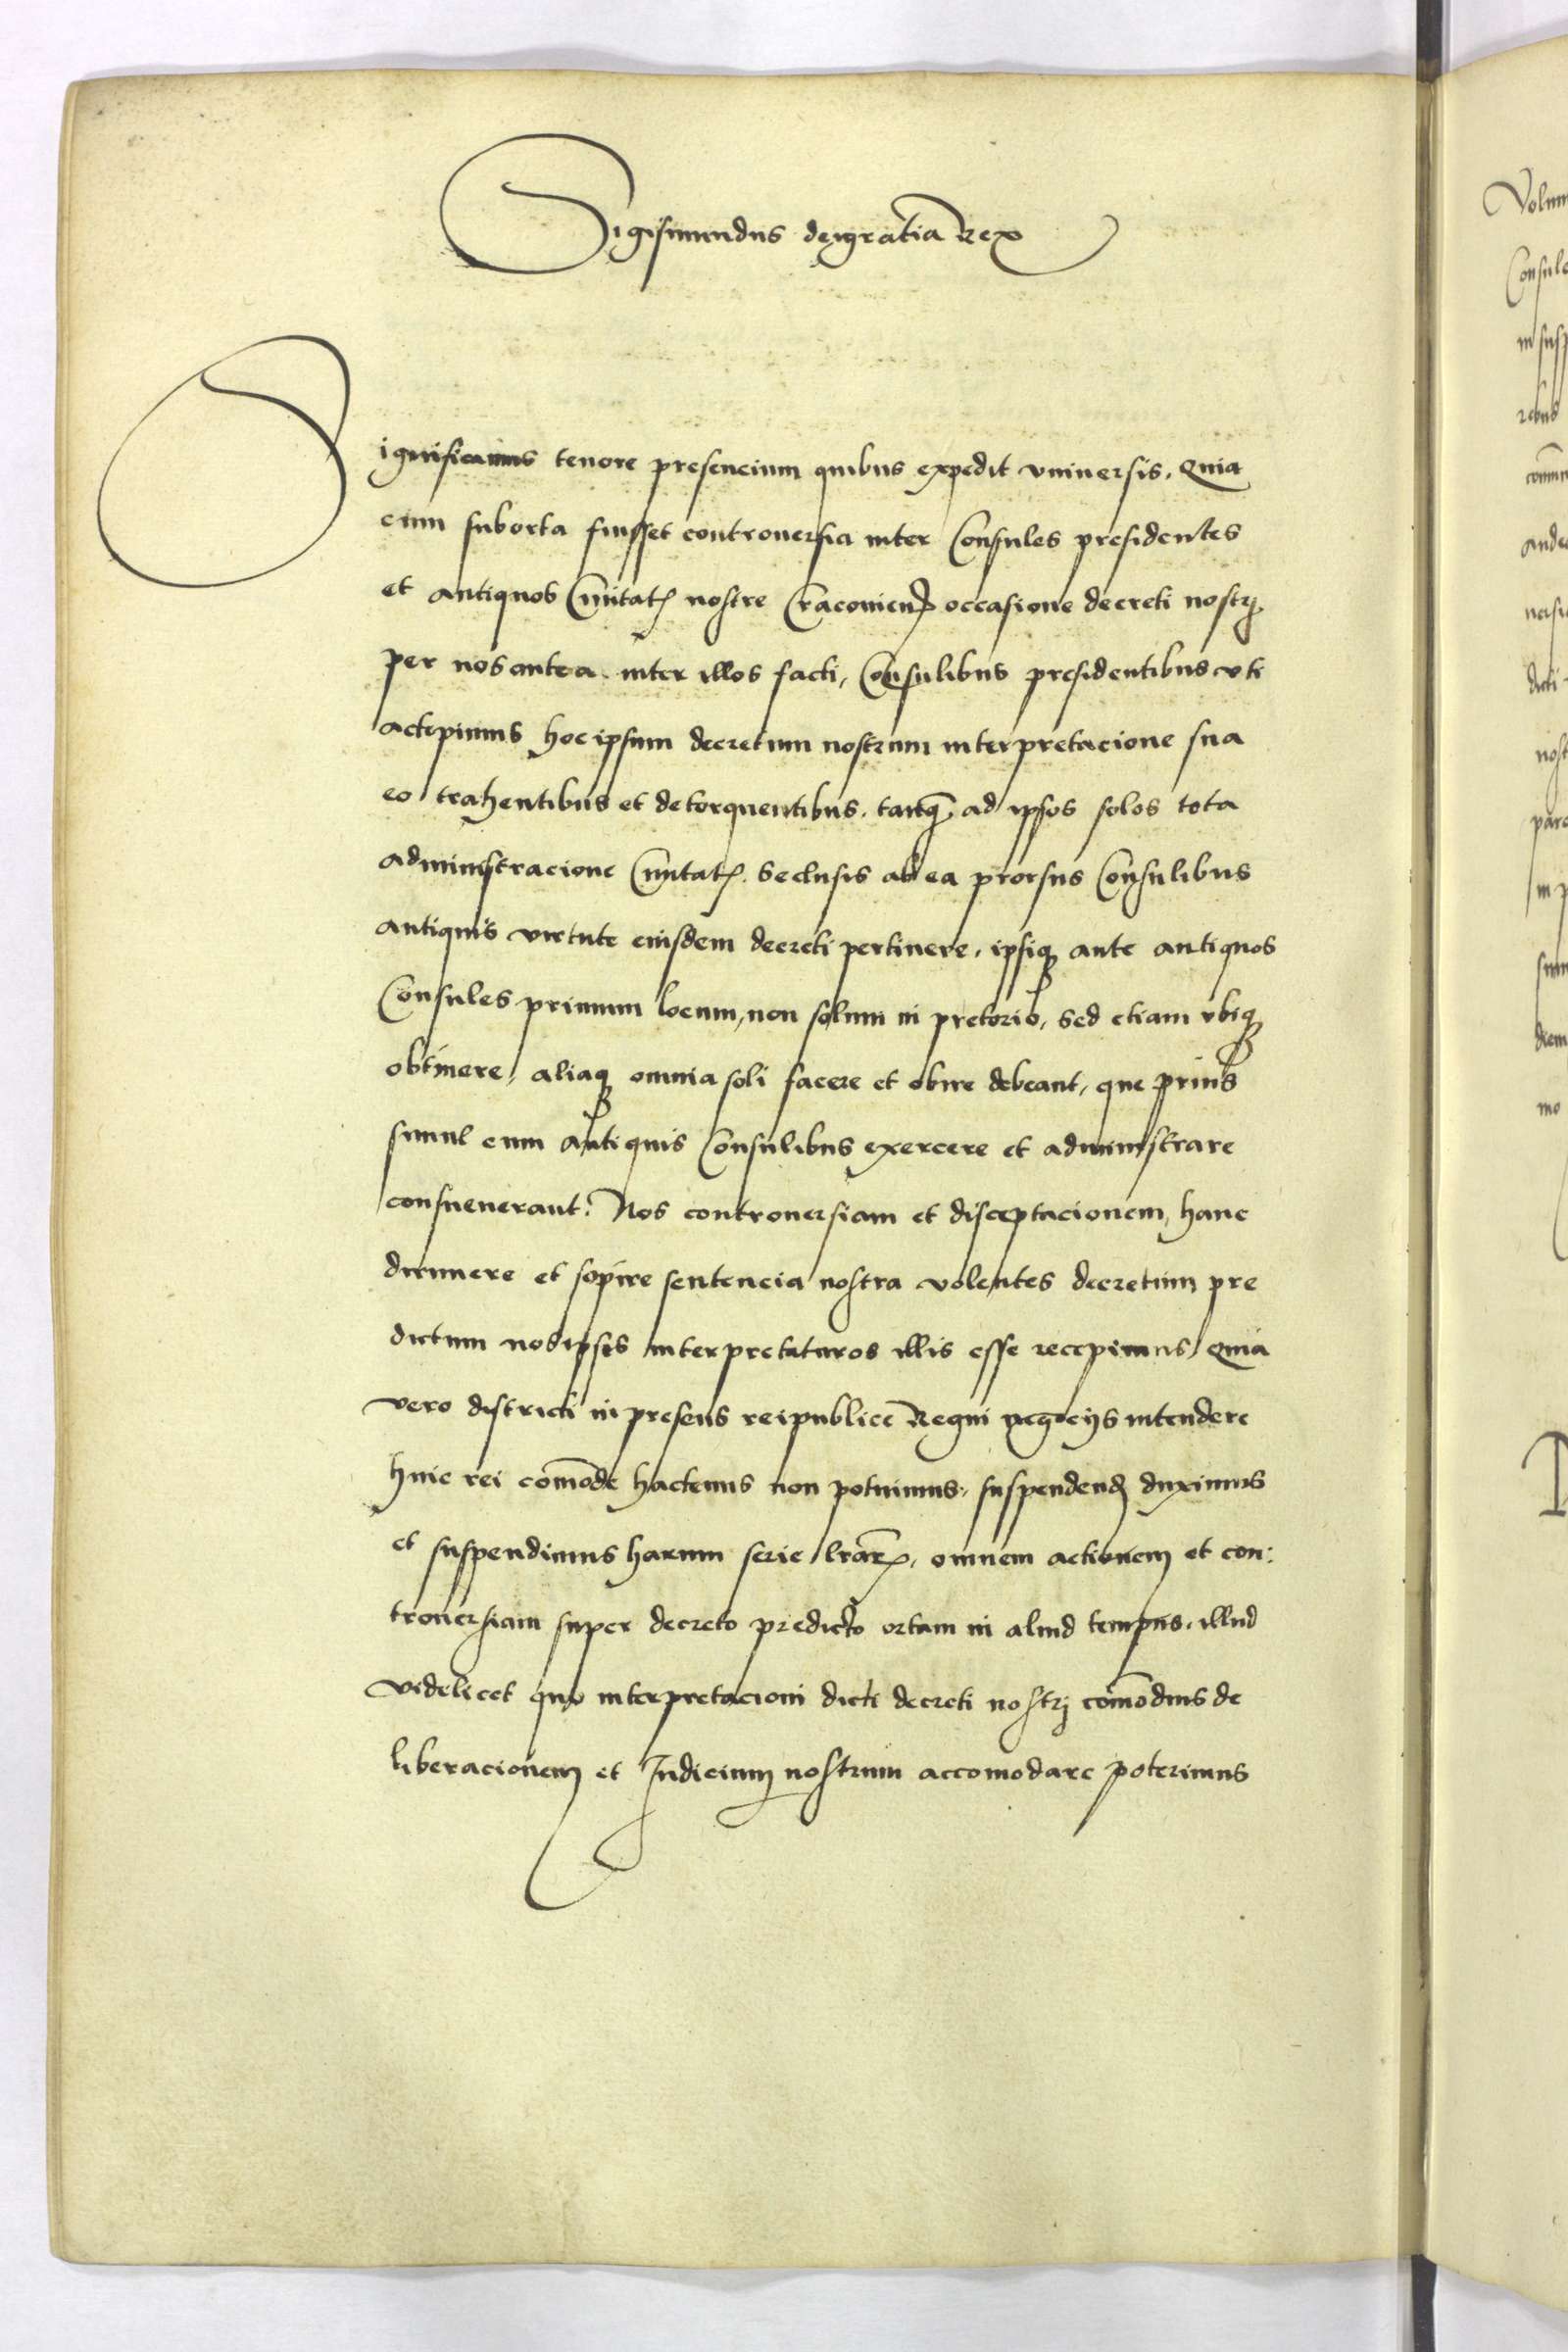 Sigismundus dei gratia Rex
Significamus tenore presencium quibus expedit vniuersis. Quia
cum suborta fuisset controuersia inter Consules presidentes
et antiquos Ciuitatꝭ nostre Cracouienꝭ occasione decreti nostrj
per nos antea inter illos facti, Consulibus presidentibus vti
accepimus hoc ipsum decretum nostrum interpretacione sua
eo trahentibus et detorquentibus, tanq̃ ad ipsos solos tota
administracione Ciuitatꝭ. Seclusis ab ea prorsus Consulibus
antiquis virtute eiusdem decreti pertinere, ipsiqꝫ ante antiquos
Consules primum locum, non solum in pretorio, Sed etiam vbiqꝫ
obtinere, aliaqꝫ omnia soli facere et obire debeant, que prius
simul cum antiquis Consulibus exercere et administrare
consueuerant: Nos controuersiam et disceptacionem, hanc
dirimere et sopire sentencia nostra volentes decretum pre
dictum nos ipsos interpretaturos illis esse recepimus, Quia
vero districti in presens reipublice Regni negocijs intendere
huic rei com̄ode hactenus non potuimus, suspendendꝭ duximus
et suspendimus harum serie l̃rarꝝ, omnem actionem et con:
trouersiam super decreto predicto ortam in aliud tempus, illud
videlicet quo interpretacioni dicti decreti nostrj com̄odius de
liberacionem et Judicium nostrum accomodare poterimus
Volum
Consule
in susp